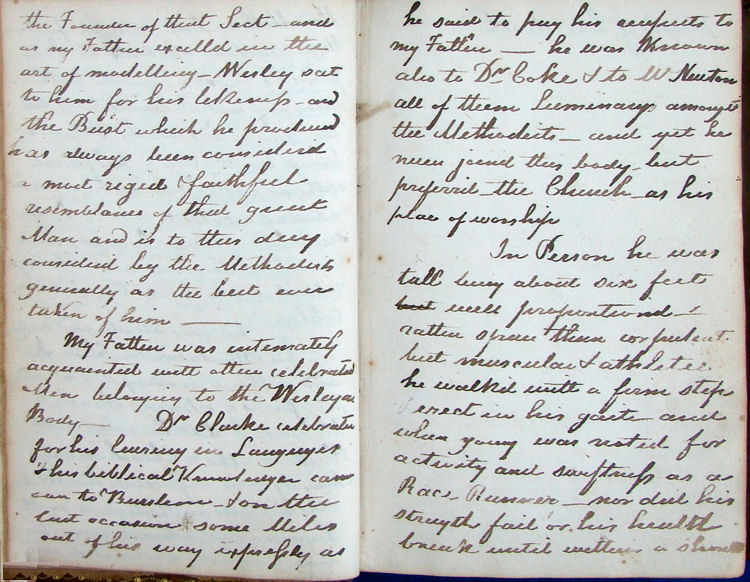 the Founder of that Sect - and
as my Father excelld in the
art of modelling - Wesley sat
to him for his likeness - and
the Bust which he produced
has always been considered
a most riged & faithful
resemblance of that great
Man and is to this day
considerd by the Methodists
generally as the best ever
taken of him -
My Father was intemately
acquainted with other celebrated
Men belonging to the Wesleyan
Body - Dr Clarke celebrated
for his learning in Languages
& his biblical Knowledge came
to Burslem - & on the
last occasion some Miles
out of his way expressly as
he said to pay his respects to
my Father - he was Known
also to Dr Coke & to Mr Newton
all of them Luminarys amongst
the Methodists - and yet he
never joind this body - but
preferrd the Church as his
place of worship
In Person he was
tall being about six feet
but well proportiond - &
rather spare than corpulent
but muscular & athletic
he walkd with a firm step
erect in his gait and
when young was noted for
activity and swiftness as a
Race Runner - nor did his
strength fail or his health
break until within a short